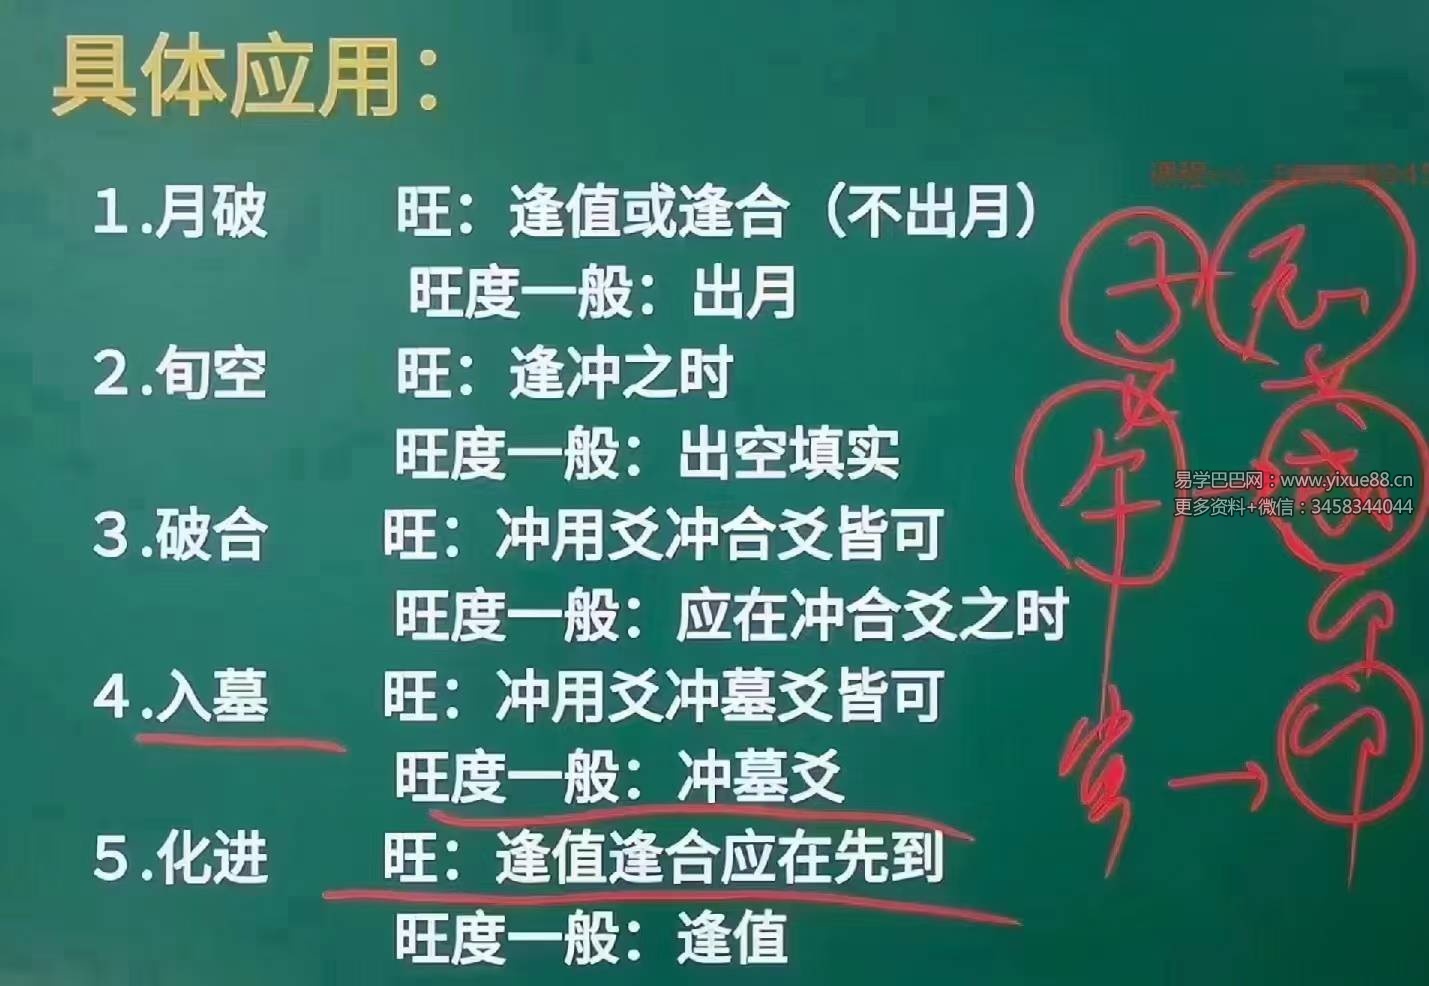 具体应用：
1.月破 旺：逢值或逢合（不出月）
旺度一般：出月
2.旬空 旺：逢冲之时
旺度一般：出空填实
3.破合 旺：冲用爻冲合爻皆可
旺度一般：应在冲合爻之时
4.入墓 旺：冲用爻冲墓爻皆可
旺度一般：冲墓爻
5.化进 旺：逢值逢合应在先到
旺度一般：逢值
子
午
卯
易学巴巴网：www.yixue88.cn
更多资料+微信：3458344044